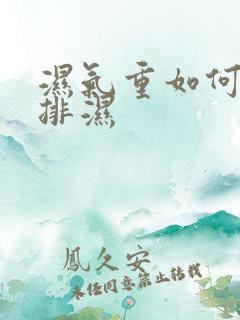 濕氣重如何
排濕
鳳久安
未經同意禁止轉載